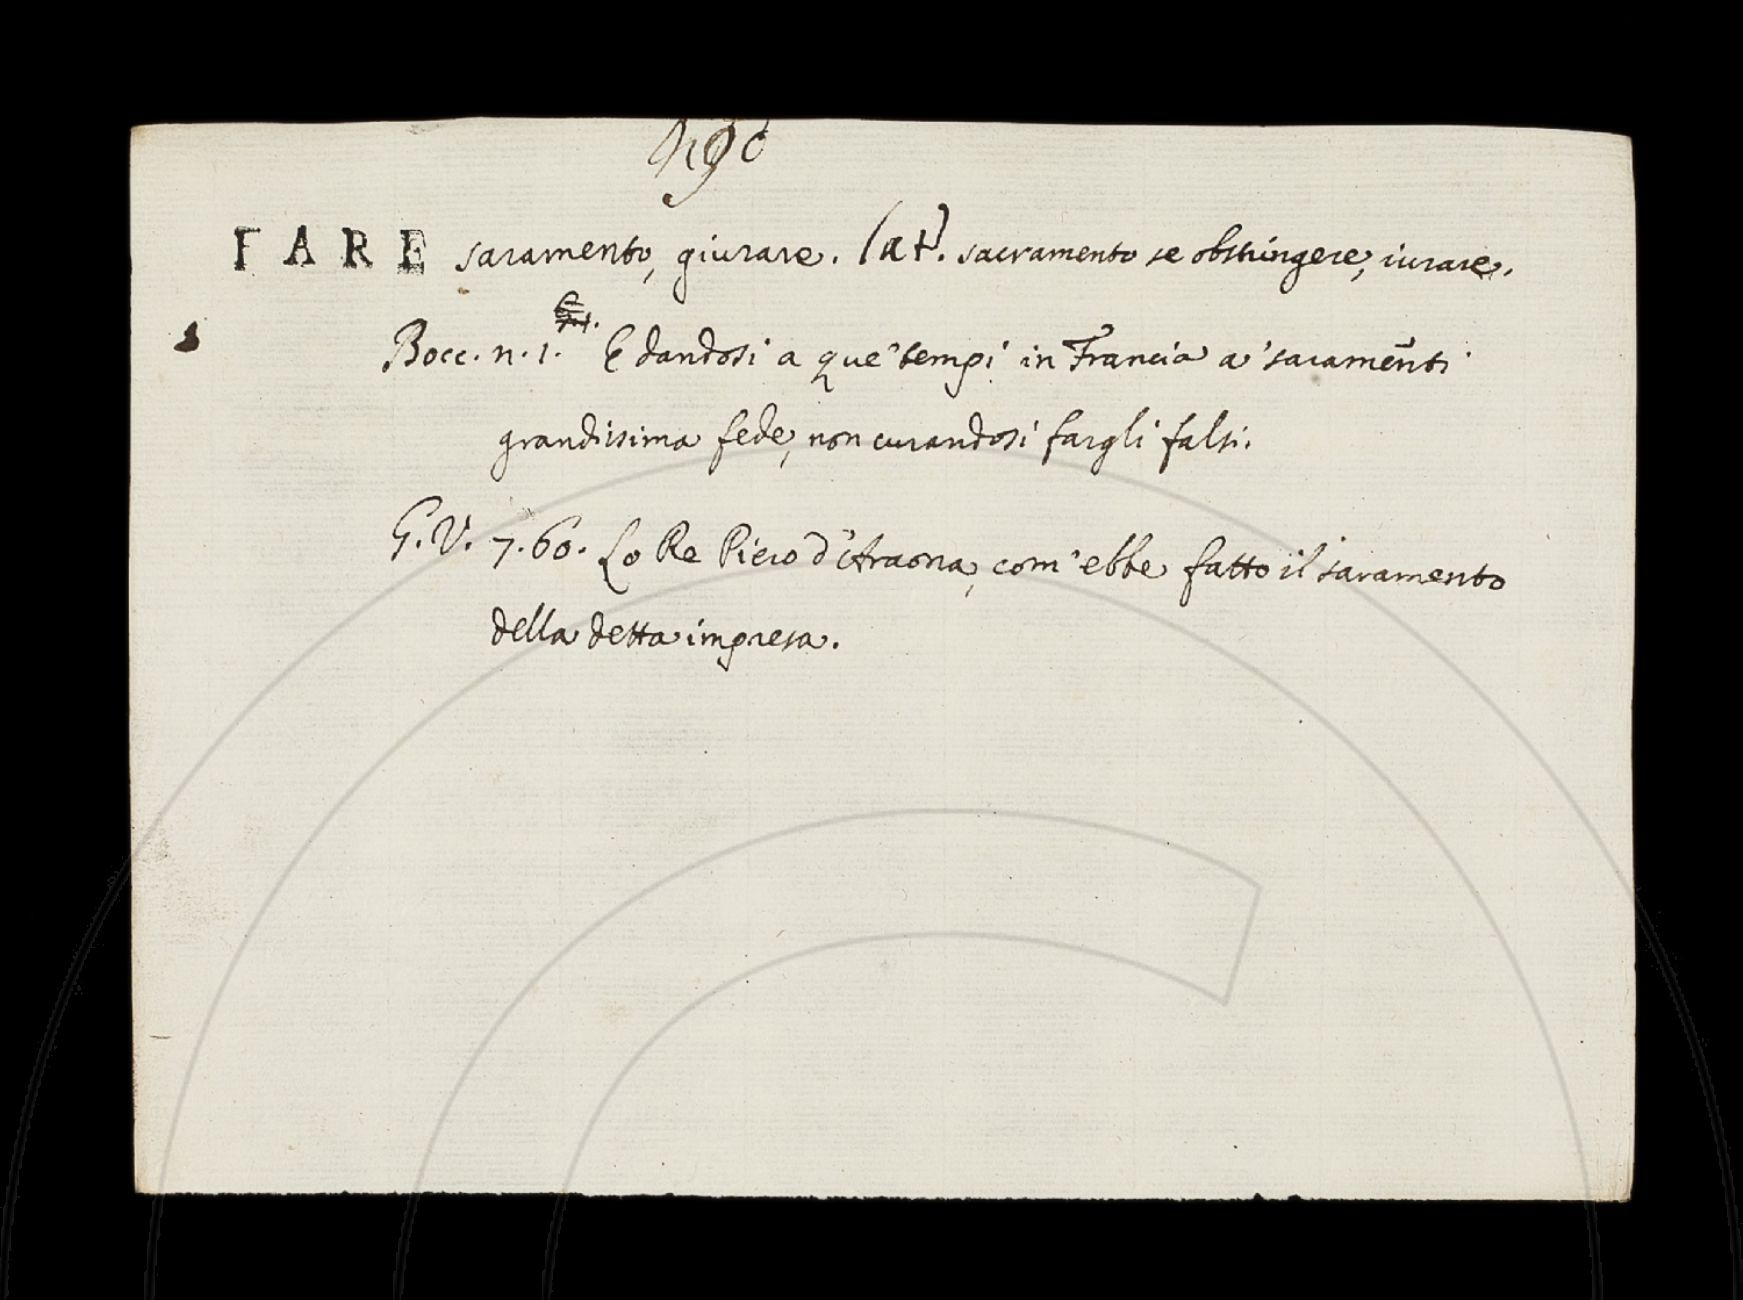 FARE saramento, giurare. Lat. sacramento se obstringere, iurare.
Bocc. n. 1. E dandosi a que' tempi in Francia a' saramenti
grandissima fede, non curandosi fargli falsi.
G. V. 7. 60. Lo Re Piero d'Araona, com' ebbe fatto il saramento
della detta impresa.